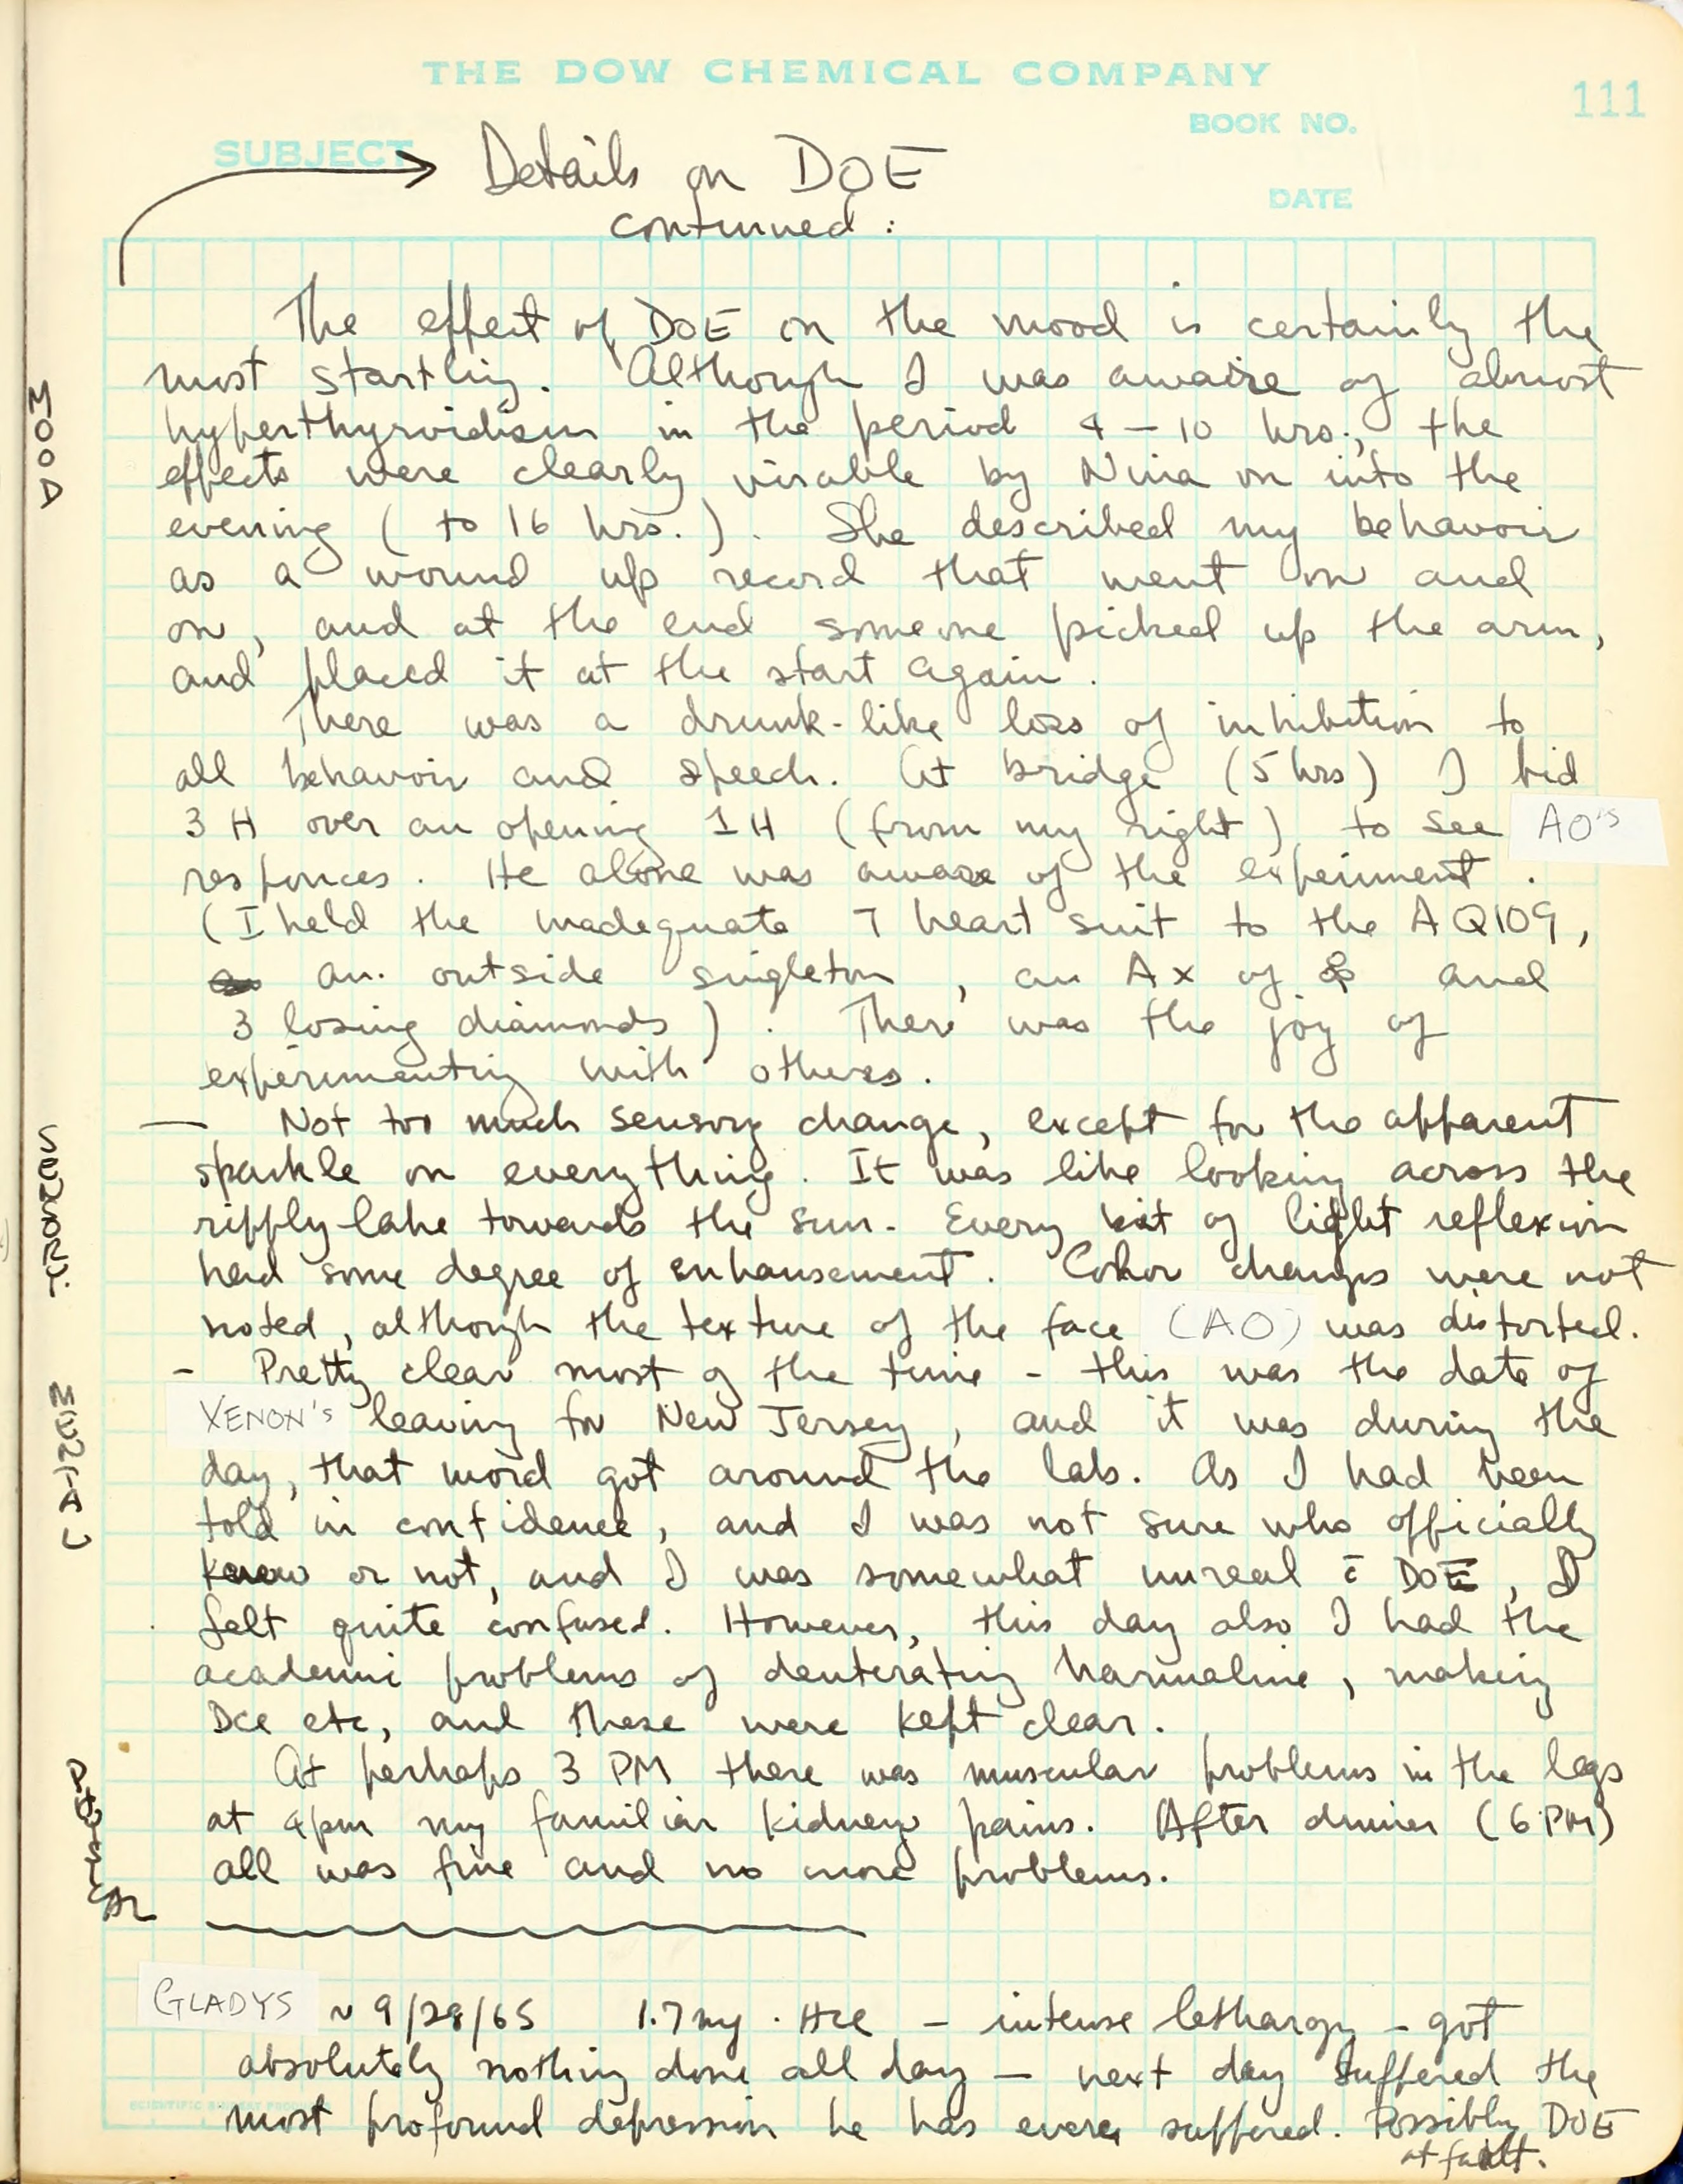 THE DOW CHEMICAL COMPANY
111
BOOK NO.
SUBJECT → Details on DOE
DATE
continued :
The effect of DOE on the mood is certainly the
most startling. Although I was aware of almost
hyperthyroidism in the period 4 - 10 hrs., the
effects were clearly visable by Nina on into the
evening ( to 16 hrs. ). She described my behavoir
as a wound up record that went on and
on, and at the end someone picked up the arm,
and placed it at the start again.
There was a drunk-like loss of inhibition to
all behavoir and speech. At bridge (5 hrs) I bid
3 H over an opening 1H (from my right) to see AO's
responces. He alone was aware of the experiment.
(I held the inadequate 7 heart suit to the AQ109,
an outside singleton, an Ax of ♣ and
3 losing diamonds). There was the joy of
experimenting with others.
— Not too much sensory change, except for the apparent
sparkle on everything. It was like looking across the
ripply lake towards the sun. Every bit of light reflexion
had some degree of enhansement. Color changes were not
noted, although the texture of the face (AO) was distorted.
- Pretty clear most of the time - this was the date of
XENON's leaving for New Jersey, and it was during the
day, that word got around the lab. As I had been
told in confidence, and I was not sure who officially
knew or not, and I was somewhat unreal c̄ DOE, I
felt quite confused. However, this day also I had the
academic problems of deuterating harmaline, making
DCl etc, and these were kept clear.
At perhaps 3 PM there was muscular problems in the legs
at 4pm my familiar kidney pains. After dinner (6 PM)
all was fine and no more problems.
GLADYS ~ 9/28/65 1.7 mg . HCl - intense lethargy - got
absolutely nothing done all day - next day suffered the
most profound depression he has ever suffered. Possibly DOE
at fault.
DOOM